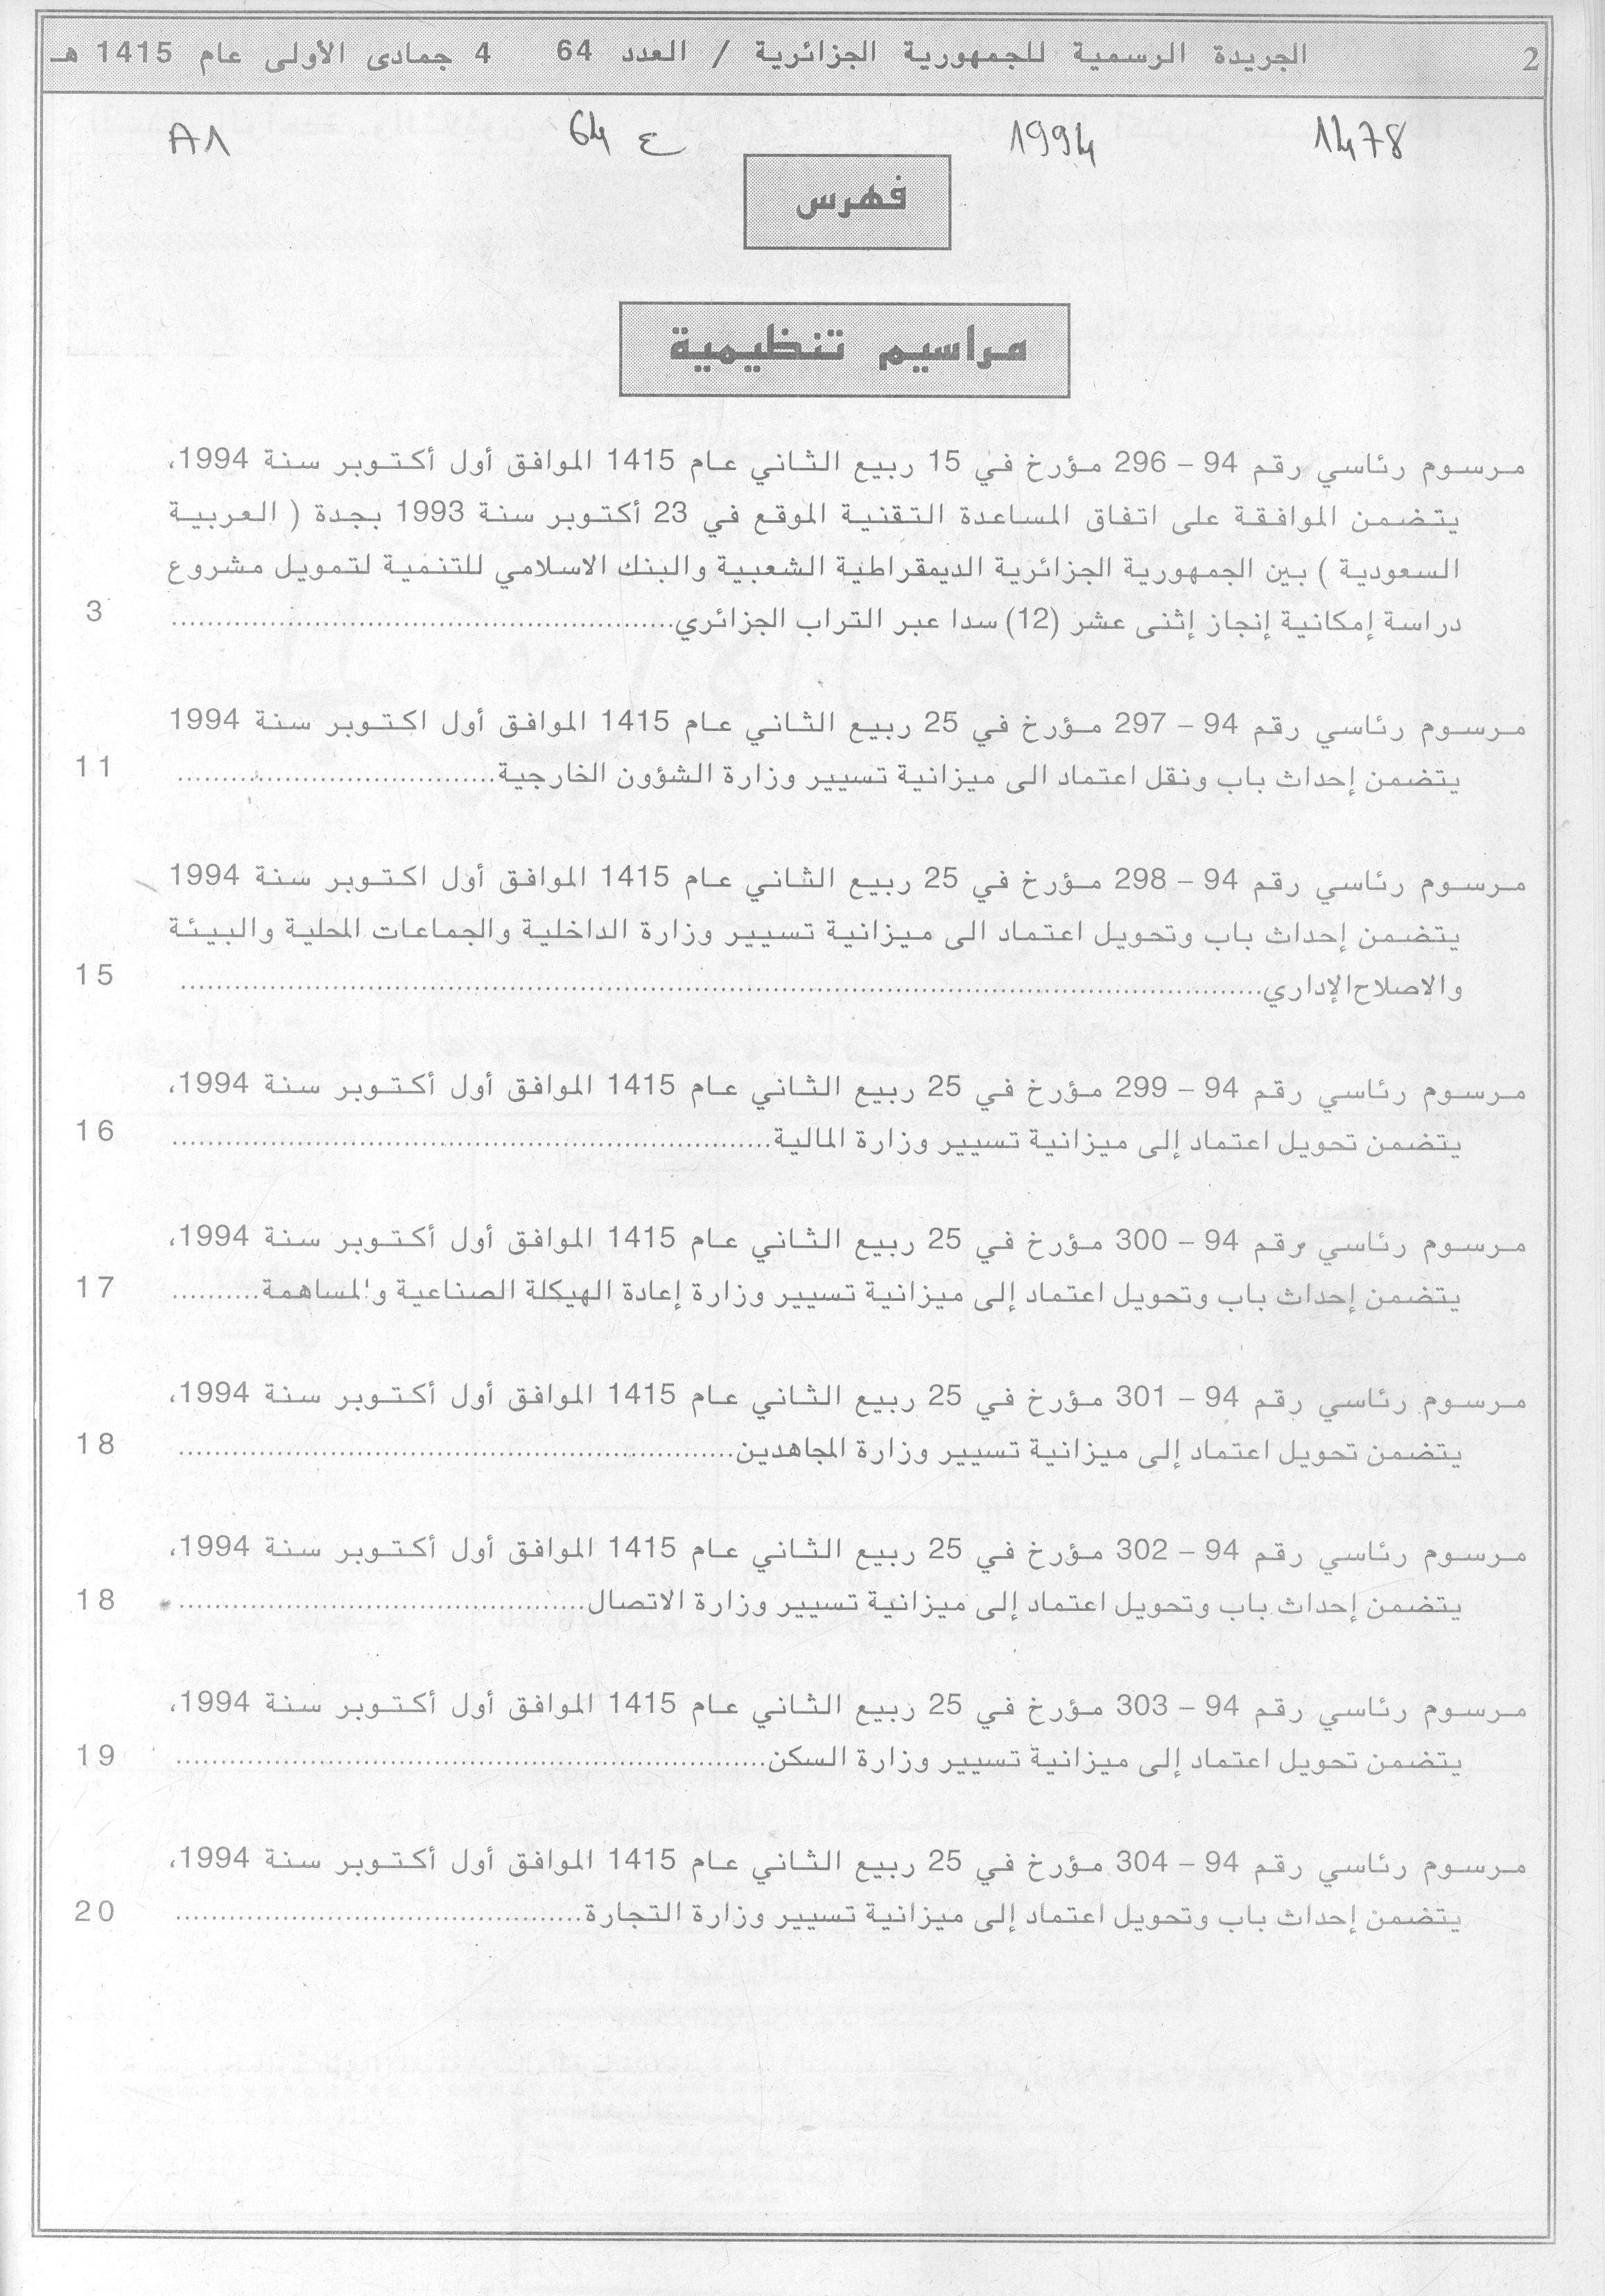 2 الجريدة الرسمية للجمهورية الجزائرية / العدد 64 4 جمادى الأولى عام 1415 هـ
1478 1994 ع 64 A1
فهرس
مراسيم تنظيمية
مرسوم رئاسي رقم 94 – 296 مؤرخ في 15 ربيع الثاني عام 1415 الموافق أول أكتوبر سنة 1994،
يتضمن الموافقة على اتفاق المساعدة التقنية الموقع في 23 أكتوبر سنة 1993 بجدة ( العربية
السعودية ) بين الجمهورية الجزائرية الديمقراطية الشعبية والبنك الاسلامي للتنمية لتمويل مشروع
دراسة إمكانية إنجاز إثنى عشر (12) سدا عبر التراب الجزائري........................................................ 3
مرسوم رئاسي رقم 94 – 297 مؤرخ في 25 ربيع الثاني عام 1415 الموافق أول اكتوبر سنة 1994
يتضمن إحداث باب ونقل اعتماد الى ميزانية تسيير وزارة الشؤون الخارجية.................................... 11
مرسوم رئاسي رقم 94 – 298 مؤرخ في 25 ربيع الثاني عام 1415 الموافق أول اكتوبر سنة 1994
يتضمن إحداث باب وتحويل اعتماد الى ميزانية تسيير وزارة الداخلية والجماعات المحلية والبيئة
والاصلاح الإداري........................................................................................................................ 15
مرسوم رئاسي رقم 94 – 299 مؤرخ في 25 ربيع الثاني عام 1415 الموافق أول أكتوبر سنة 1994،
يتضمن تحويل اعتماد إلى ميزانية تسيير وزارة المالية.................................................................. 16
مرسوم رئاسي رقم 94 – 300 مؤرخ في 25 ربيع الثاني عام 1415 الموافق أول أكتوبر سنة 1994،
يتضمن إحداث باب وتحويل اعتماد إلى ميزانية تسيير وزارة إعادة الهيكلة الصناعية والمساهمة.......... 17
مرسوم رئاسي رقم 94 – 301 مؤرخ في 25 ربيع الثاني عام 1415 الموافق أول أكتوبر سنة 1994،
يتضمن تحويل اعتماد إلى ميزانية تسيير وزارة المجاهدين.............................................................. 18
مرسوم رئاسي رقم 94 – 302 مؤرخ في 25 ربيع الثاني عام 1415 الموافق أول أكتوبر سنة 1994،
يتضمن إحداث باب وتحويل اعتماد إلى ميزانية تسيير وزارة الاتصال............................................. 18
مرسوم رئاسي رقم 94 – 303 مؤرخ في 25 ربيع الثاني عام 1415 الموافق أول أكتوبر سنة 1994،
يتضمن تحويل اعتماد إلى ميزانية تسيير وزارة السكن.................................................................. 19
مرسوم رئاسي رقم 94 – 304 مؤرخ في 25 ربيع الثاني عام 1415 الموافق أول أكتوبر سنة 1994،
يتضمن إحداث باب وتحويل اعتماد إلى ميزانية تسيير وزارة التجارة............................................. 20